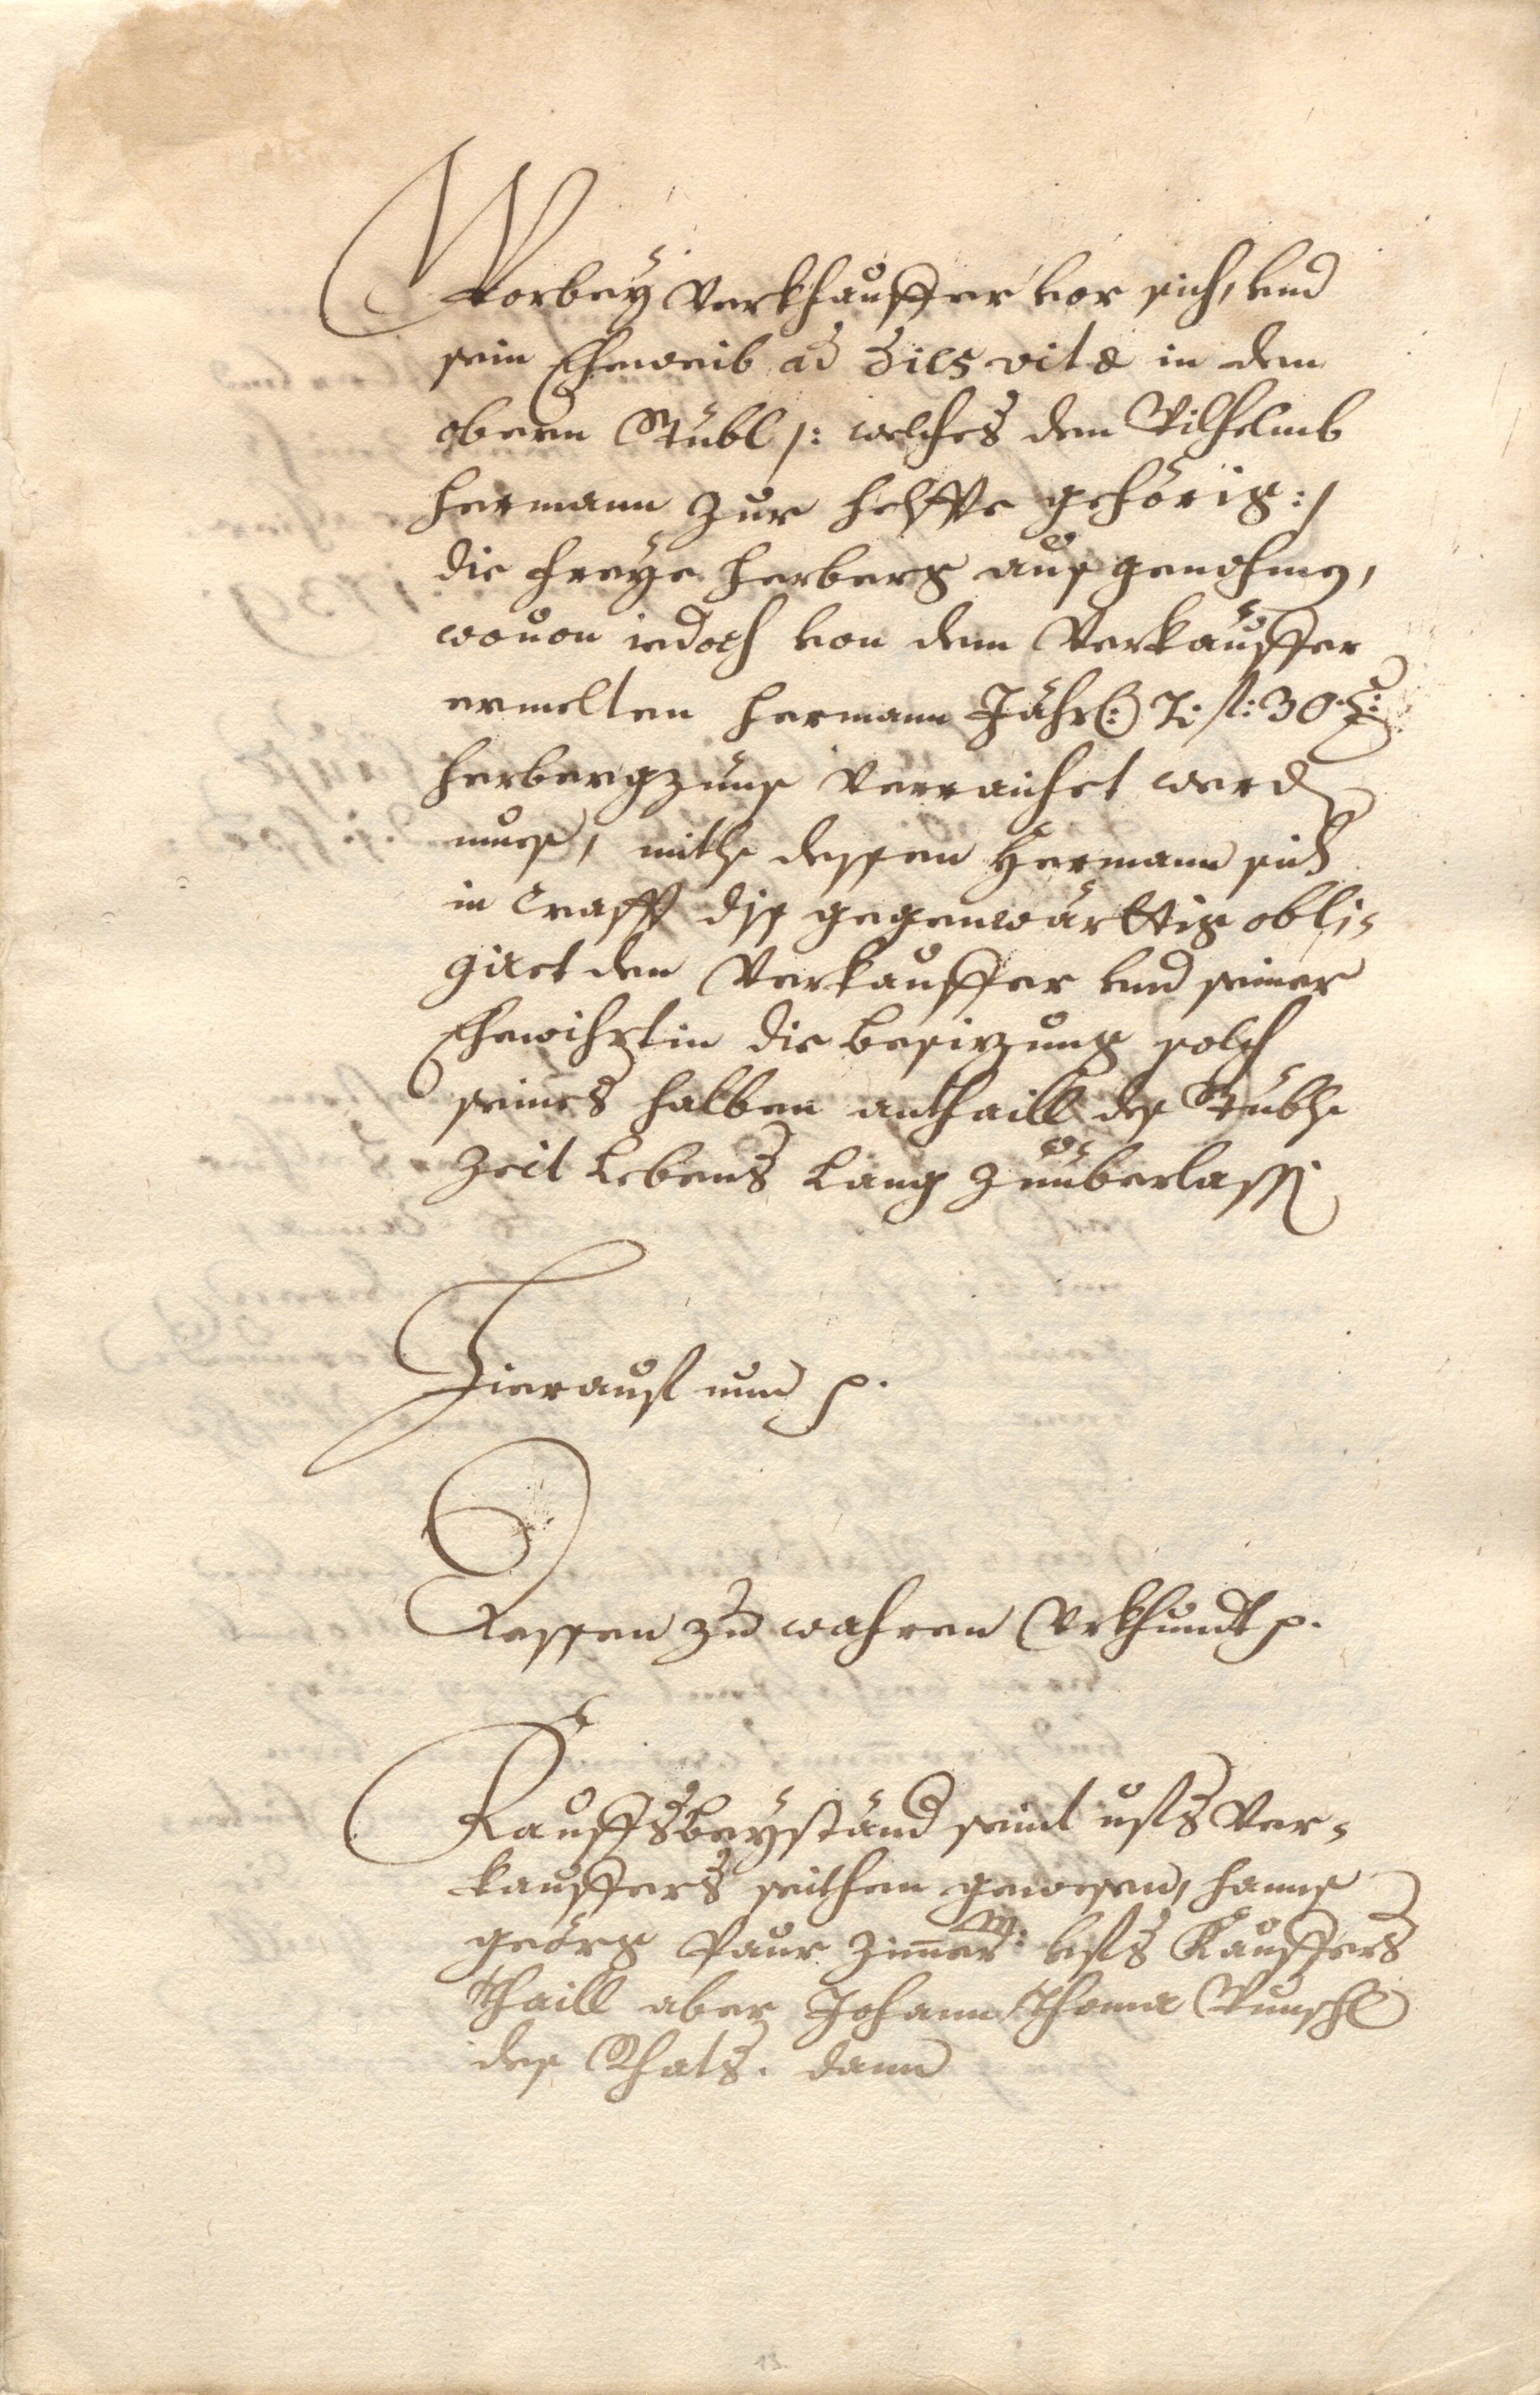 Worbey Verkhauffer vor sich, vnd
sein Eheweib ad dies vitæ in dem
obern Stübl /: welches dem Wilhelmb
Hermann zur helffte gehörig :/
die freÿe herberg ausgenohmen,
wouon iedoch von dem Verkauffer
ermelten Hermann Jährl: 2: fl: 30 x:
herbergzünß verraichet werden
mues, mithin dessen Hermann sich
in Crafft diß gegenwärttig obli-
giret dem Verkauffer vnd seiner
Ehewihrtin die besizung solch
seines halben anthaill des Stübls
Zeit Lebens Lang zuüberlassen
Hierauß nun p.
Dessen zu wahren Vrkhundt p.
Kauffsbeÿständ seint uf s Ver-
kauffers seithen gewesen, Hanns
Geörg Paur Zimmerm: vf s Käuffers
thaill aber Johann Thoma Wunschl
des Rhats. dann
13.